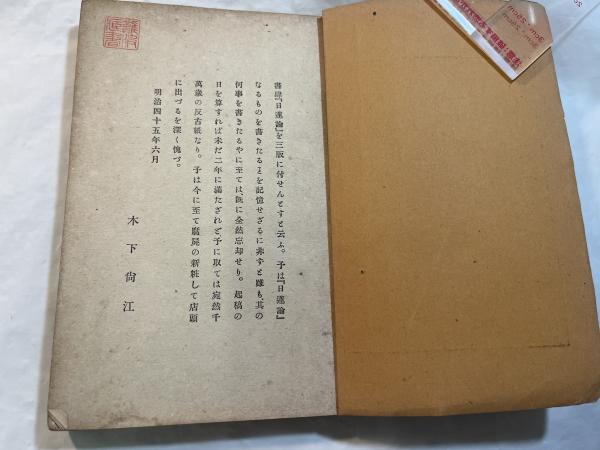 書肆『日蓮論』を三版に付せんとすと云ふ。予は『日蓮論』
なるものを書きたることを記憶せざるに非ずと雖も、其の
何事を書きたるやに至ては、既に全然忘却せり。起稿の
日を算すれば未だ二年に満たざれど予に取ては宛然千
萬歳の反古紙なり。予は今に至て腐屍の新粧して店頭
に出づるを深く愧づ。
明治四十五年六月
木下尙江